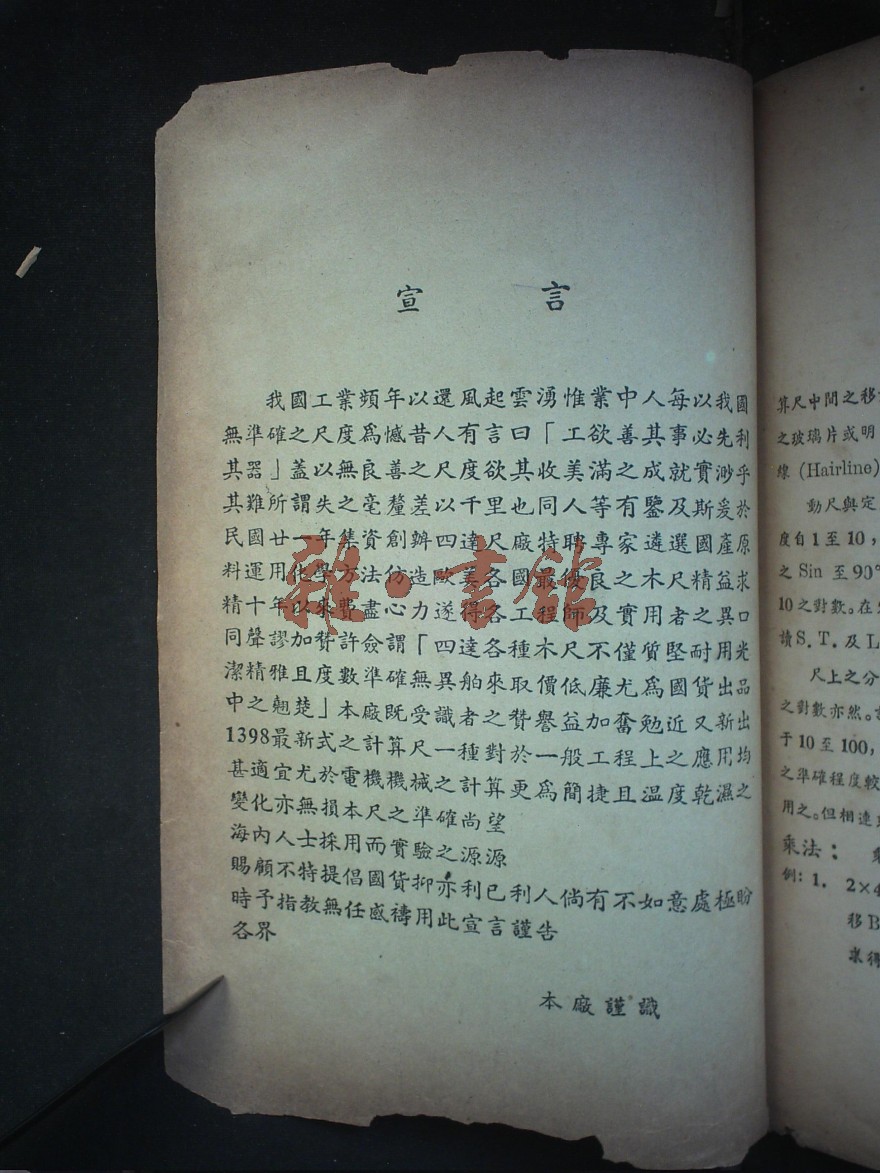 宣言
我國工業頻年以還風起雲湧惟業中人每以我國
無準確之尺度爲憾昔人有言曰「工欲善其事必先利
其器」蓋以無良善之尺度欲其收美滿之成就實渺乎
其難所謂失之毫釐差以千里也同人等有鑒及斯爰於
民國廿一年集資創辦四達尺廠特聘專家遴選國產原
料運用化學方法仿造歐美各國最優良之木尺精益求
精十年以來費盡心力遂得各工程師及實用者之異口
同聲謬加贊許僉謂「四達各種木尺不僅質堅耐用光
潔精雅且度數準確無異舶來取價低廉尤爲國貨出品
中之翹楚」本廠既受識者之贊譽益加奮勉近又新出
1398最新式之計算尺一種對於一般工程上之應用均
甚適宜尤於電機機械之計算更爲簡捷且温度乾濕之
變化亦無損本尺之準確尚望
海內人士採用而實驗之源源
賜顧不特提倡國貨抑亦利己利人倘有不如意處極盼
時予指教無任感禱用此宣言謹告
各界
本廠謹識
雅·書館
算尺中間之移
之玻璃片或明
線 (Hairline)
動尺與定
度自1至10，
之 Sin 至90°
10之對數。在
讀S. T. 及L
尺上之分
之對數亦然。
于10至100，
之準確程度較
用之。但相連
乘法：
例：1. 2×4
移B
求得